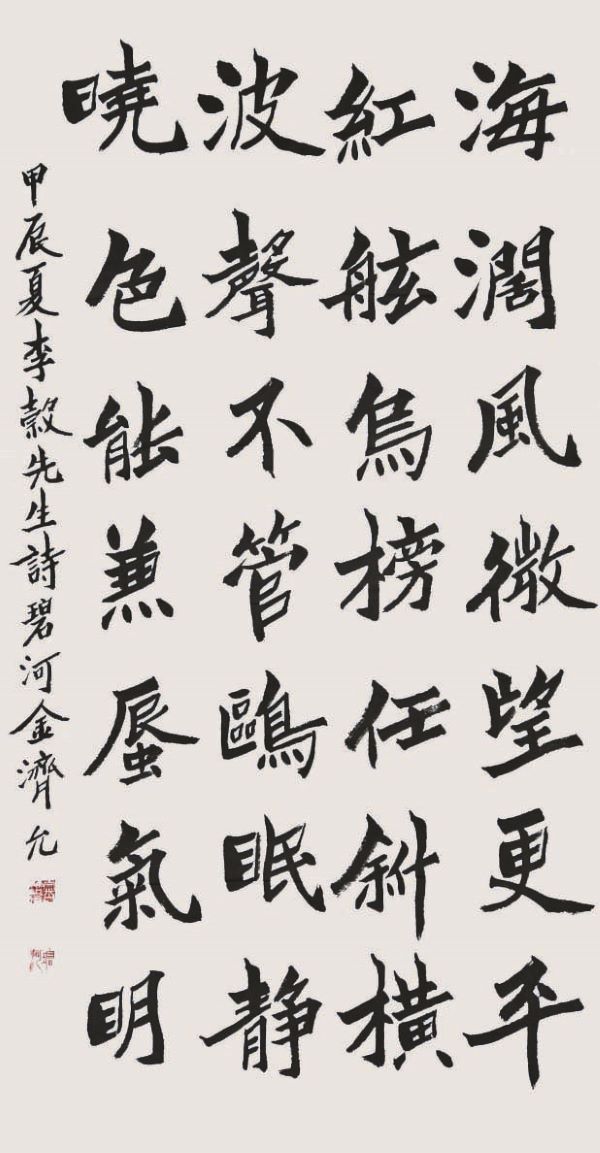 海濶風微望更平
紅舷烏榜任斜橫
波聲不管鷗眠靜
曉色能兼蜃氣明
甲辰夏李穀先生詩碧河金濟允